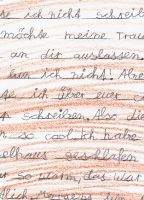 se ich nicht schreib
möchte meine Trau
an dir auslassen.
kann ich nicht! Aber
se ich über euer
schreiben. Also di
n so cool. Ich habe
elhaus geschlafen
ar so warm, das war
dlich. Morgens